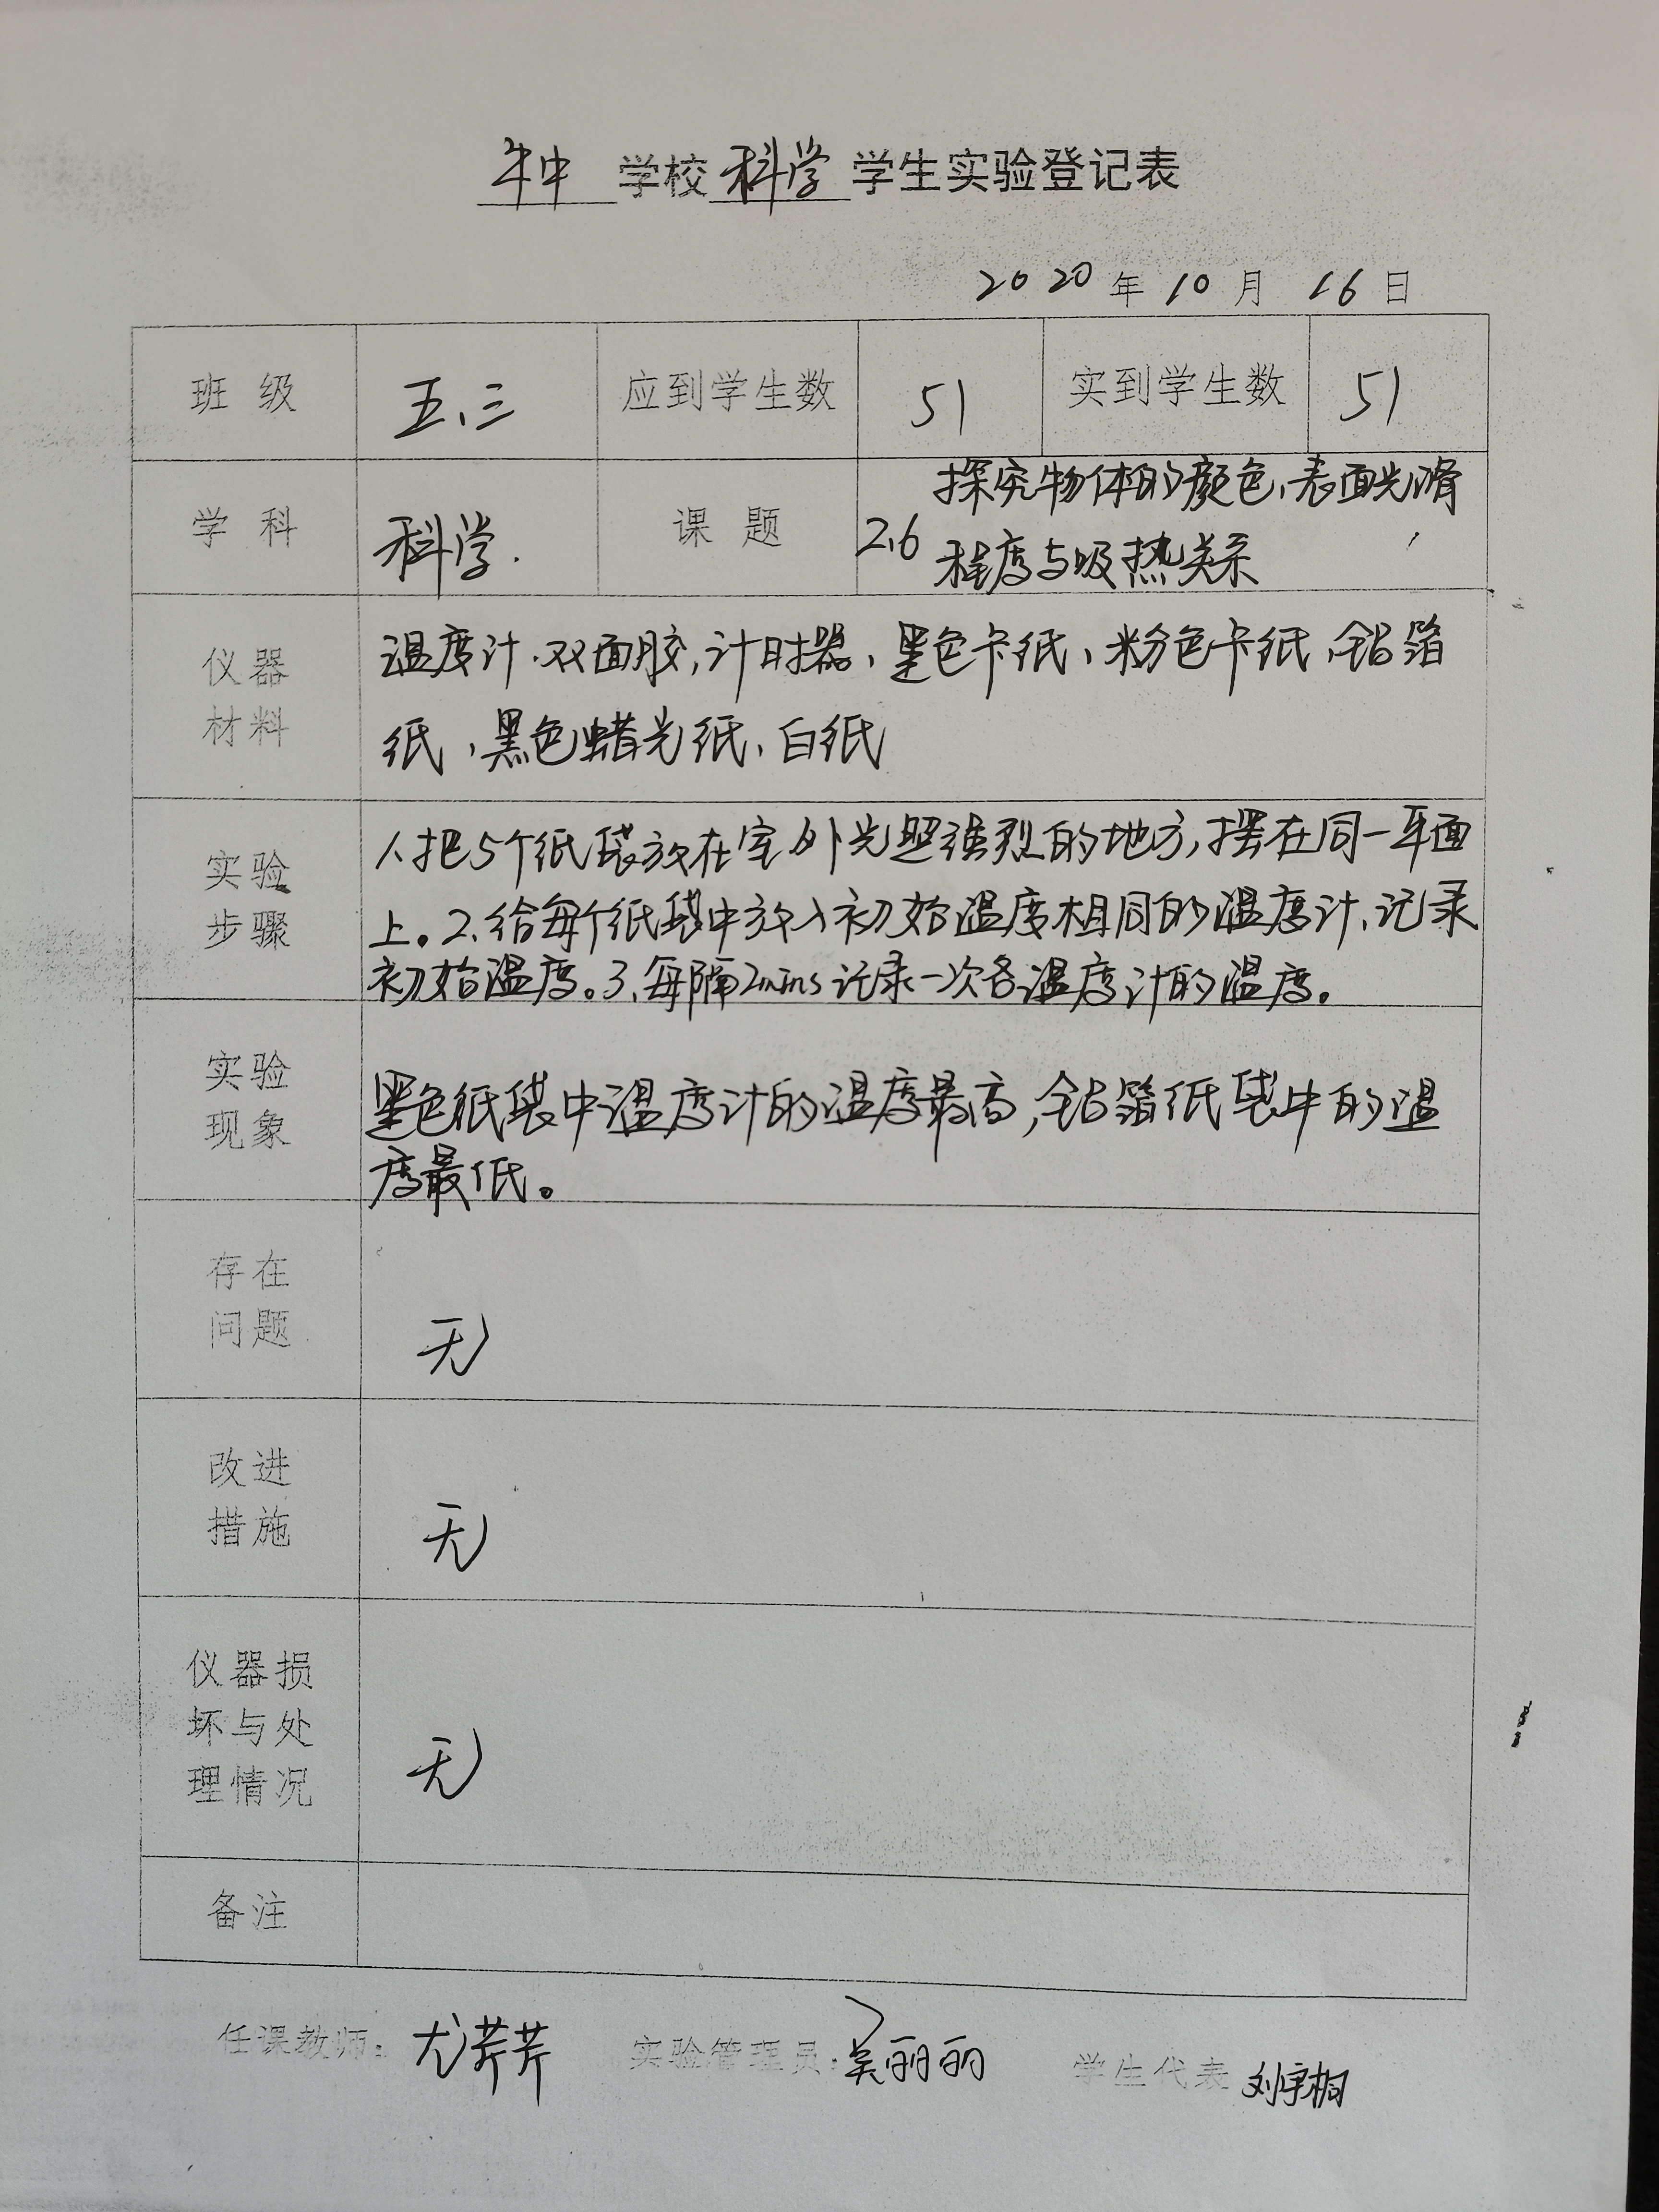 牛中 学校 科学 学生实验登记表
2020 年 10 月 16 日
班 级 五、三 应到学生数 51 实到学生数 51
学 科 科学. 课 题 2.6 探究物体的颜色、表面光滑
程度与吸热关系
仪器
材料
温度计、双面胶,计时器、黑色卡纸、粉色卡纸、铝箔
纸、黑色蜡光纸、白纸
实验
步骤
1、把5个纸袋放在室外光照强烈的地方,摆在同一平面
上。2、给每个纸袋中放入初始温度相同的温度计、记录
初始温度。3、每隔2mins记录一次各温度计的温度。
实验
现象
黑色纸袋中温度计的温度最高,铝箔纸袋中的温
度最低。
存在
问题
无
改进
措施
无
仪器损
坏与处
理情况
无
备注
任课教师: 尤芹芹 实验管理员: 吴丽丽 学生代表 刘宇桐